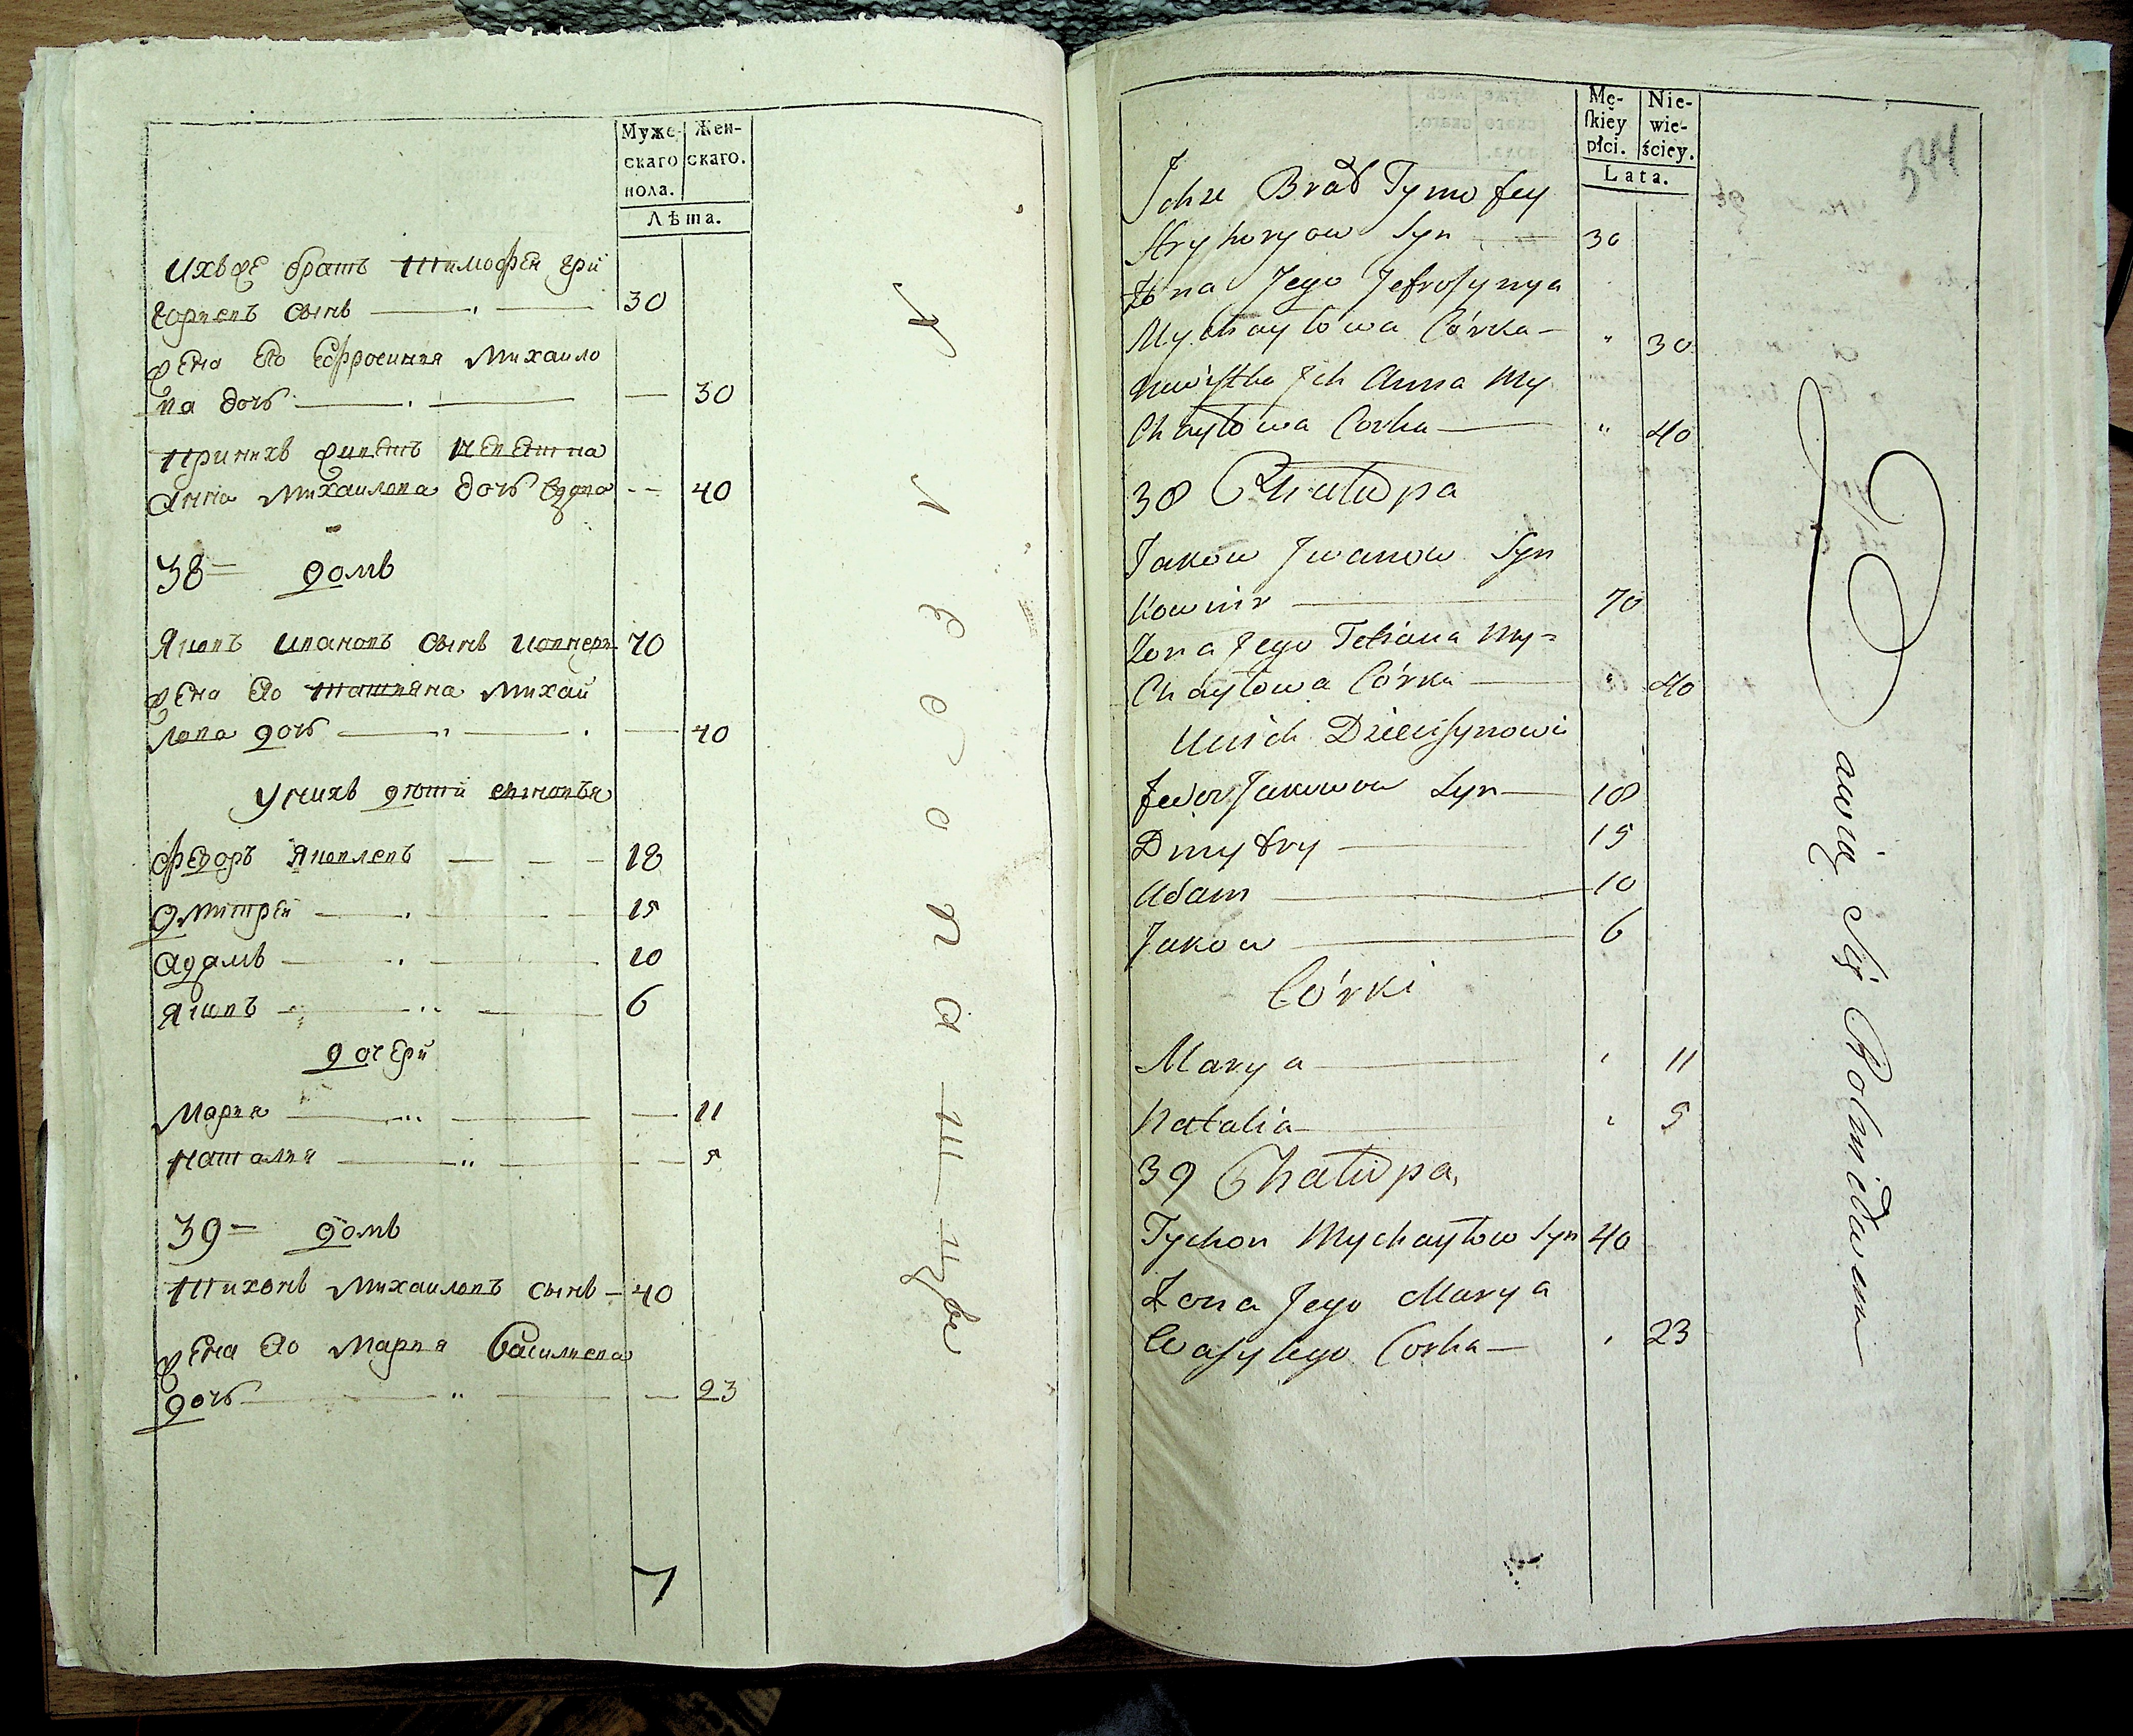 Муже-
скаго
пола.
Жен-
скаго.
Лѣта.
Ихъ же братъ Тимофей Гри
горьевъ сынъ 30
жена его Ефросиния Михайло
ва дочь 30
При нихъ живетъ невестка
Анна Михайлова дочь вдова 40
38 домъ
Яковъ Ивановъ сынъ 70
жена его Татияна Михай
лова дочь 40
У нихъ детей сыновья
Федоръ Яковлевъ 18
Дмитрей 15
Адамъ 10
Яковъ 6
дочери
Мария 11
Наталия 5
39 домъ
Тихонъ Михайловъ сынъ 40
жена его Мария Василиева
дочь 23
7
Mę-
skiey
płci.
Nie-
wie-
ściey.
Lata.
544
Ichże Brat Tymofey
Hryhoryow Syn 30
Żona Jego Jefrosynya
Mychayłowa Córka 30
Newistka Ich Anna My
Chayłowa Corka 40
38 Chałupa
Jakow Iwanow Syn
70
Żona Jego Tetiana My=
Chayłowa Córka 40
Unich Dzieci Synowie
Fedor Jakowow Syn 18
Dmytry 15
Adam 10
Jakow 6
Córki
Marya 11
Natalia 5
39 Chałupa
Tychon Mychayłow Syn 40
Żona Jego Marya
Wasylego Corka 23